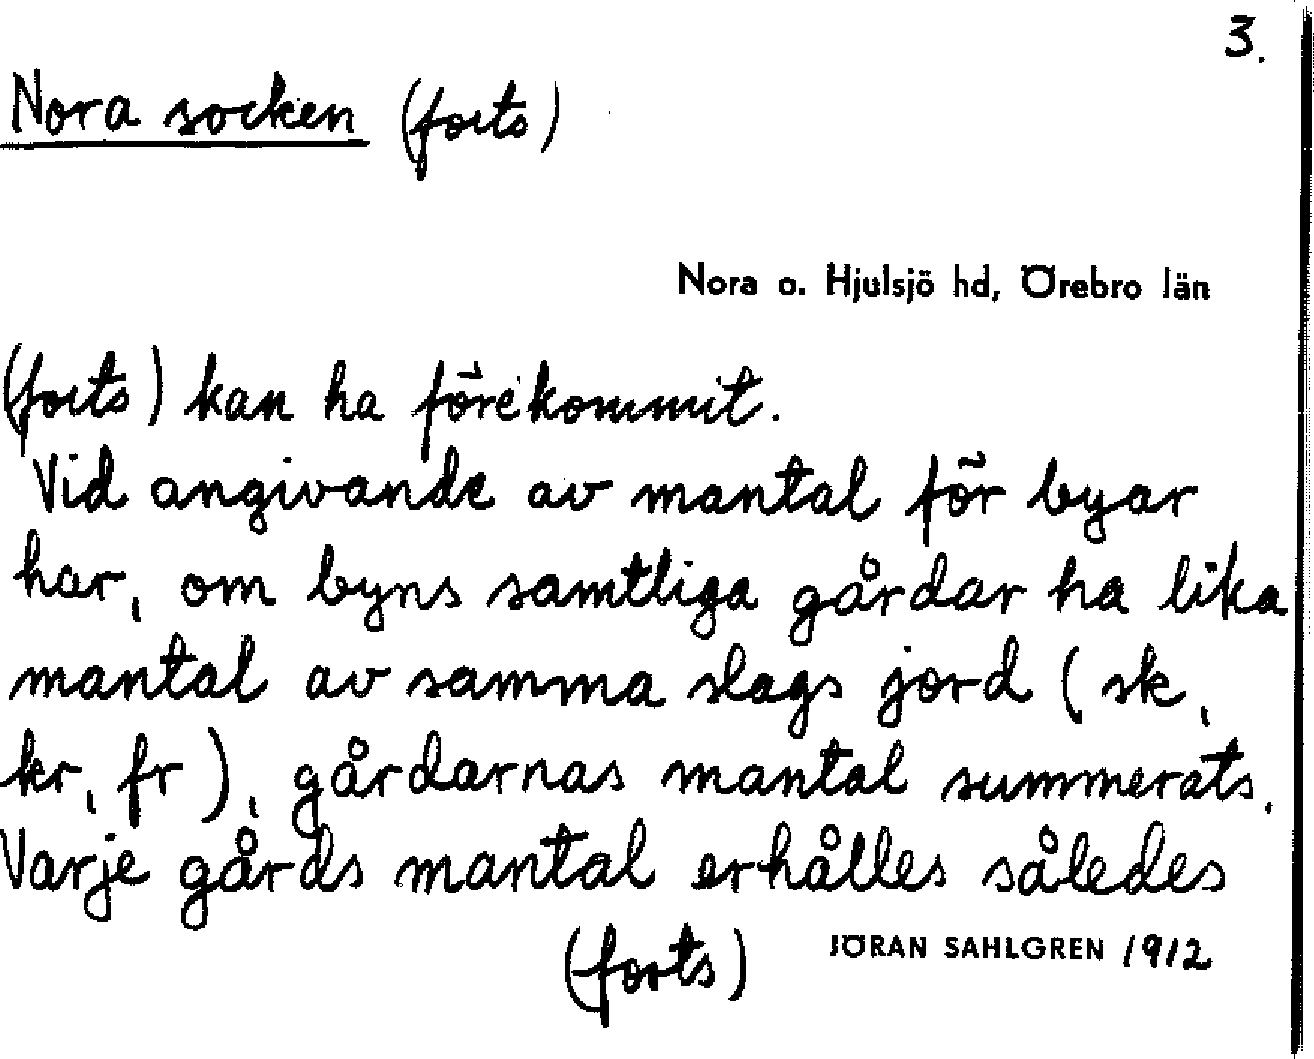 3.
Nora socken (forts)
Nora o. Hjulsjö hd, Örebro län
(forts) kan ha förekommit.
Vid angivande av mantal för byar
har, om byns samtliga gårdar ha lika
mantal av samma slags jord (sk,
kr, fr), gårdarnas mantal summerats.
Varje gårds mantal erhålles således
(forts)
JÖRAN SAHLGREN 1912